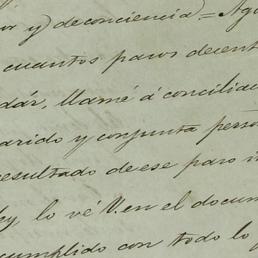 or y) de conciencia = Agu
cuantos pasos decent
dár, llamé á conciliac
arido y conjunta perso
resultado de ese paso in
ey, lo vé V. en el docum
cumplido con todo lo